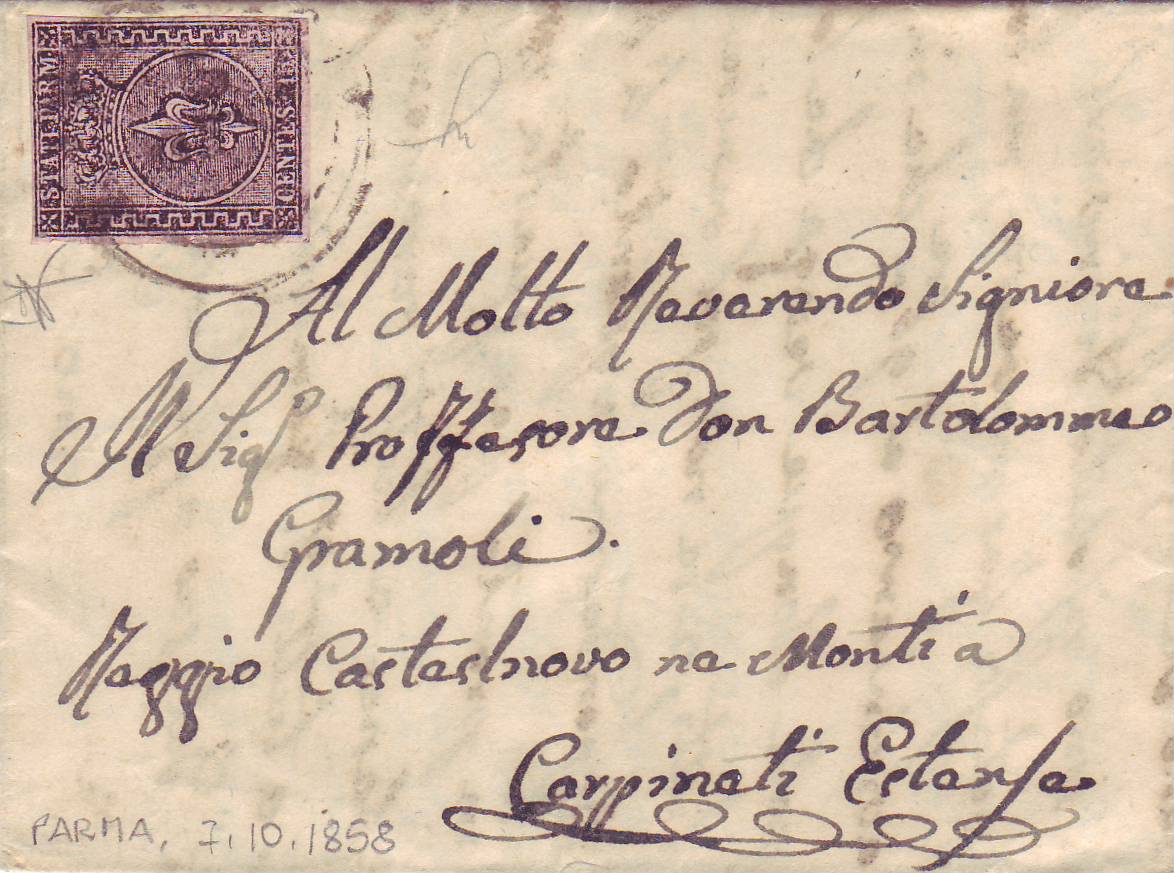 STATI PARM.
CENTES. 15
Al Molto Reverendo Signiore
Il Sigr Proffesore Don Bartolommeo
Gramoli.
Reggio Castaslnovo ne Monti a
Carpineti Estense
PARMA, 7.10.1858